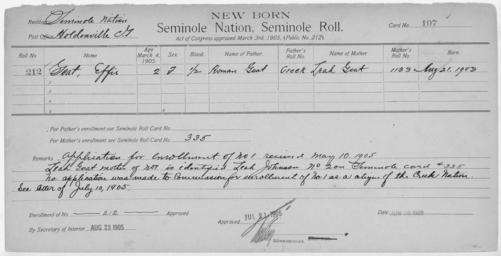 NEW BORN
Resides Seminole Nation
Seminole Nation, Seminole Roll.
Card No. 107
Post Holdenville I.T.
Act of Congress approved March 3rd, 1905, (Public No. 212).
Roll No. Name Age March 4, 1905 Sex. Blood. Name of Father. Father's Roll No. Name of Mother Mother's Roll No. Born.
212 Goat, Effie 2 F 1/2 Roman Goat Creek Leah Goat 1133 Aug 21, 1903
2
3
4
5
For Father's enrollment see Seminole Roll Card No.
For Mother's enrollment see Seminole Roll Card No. 335
Remarks Application for enrollment of No1 received May 10, 1905
Leah Goat mother of No1 is identified Leah Johnson No 2 on Seminole card #335
No application was made to Commission for enrollment of No1 as a citizen of the Creek Nation.
See letter of July 10, 1905.
Enrollment of No. 212 Approved
Approved JUL 1905
Date
By Secretary of Interior AUG 23 1905